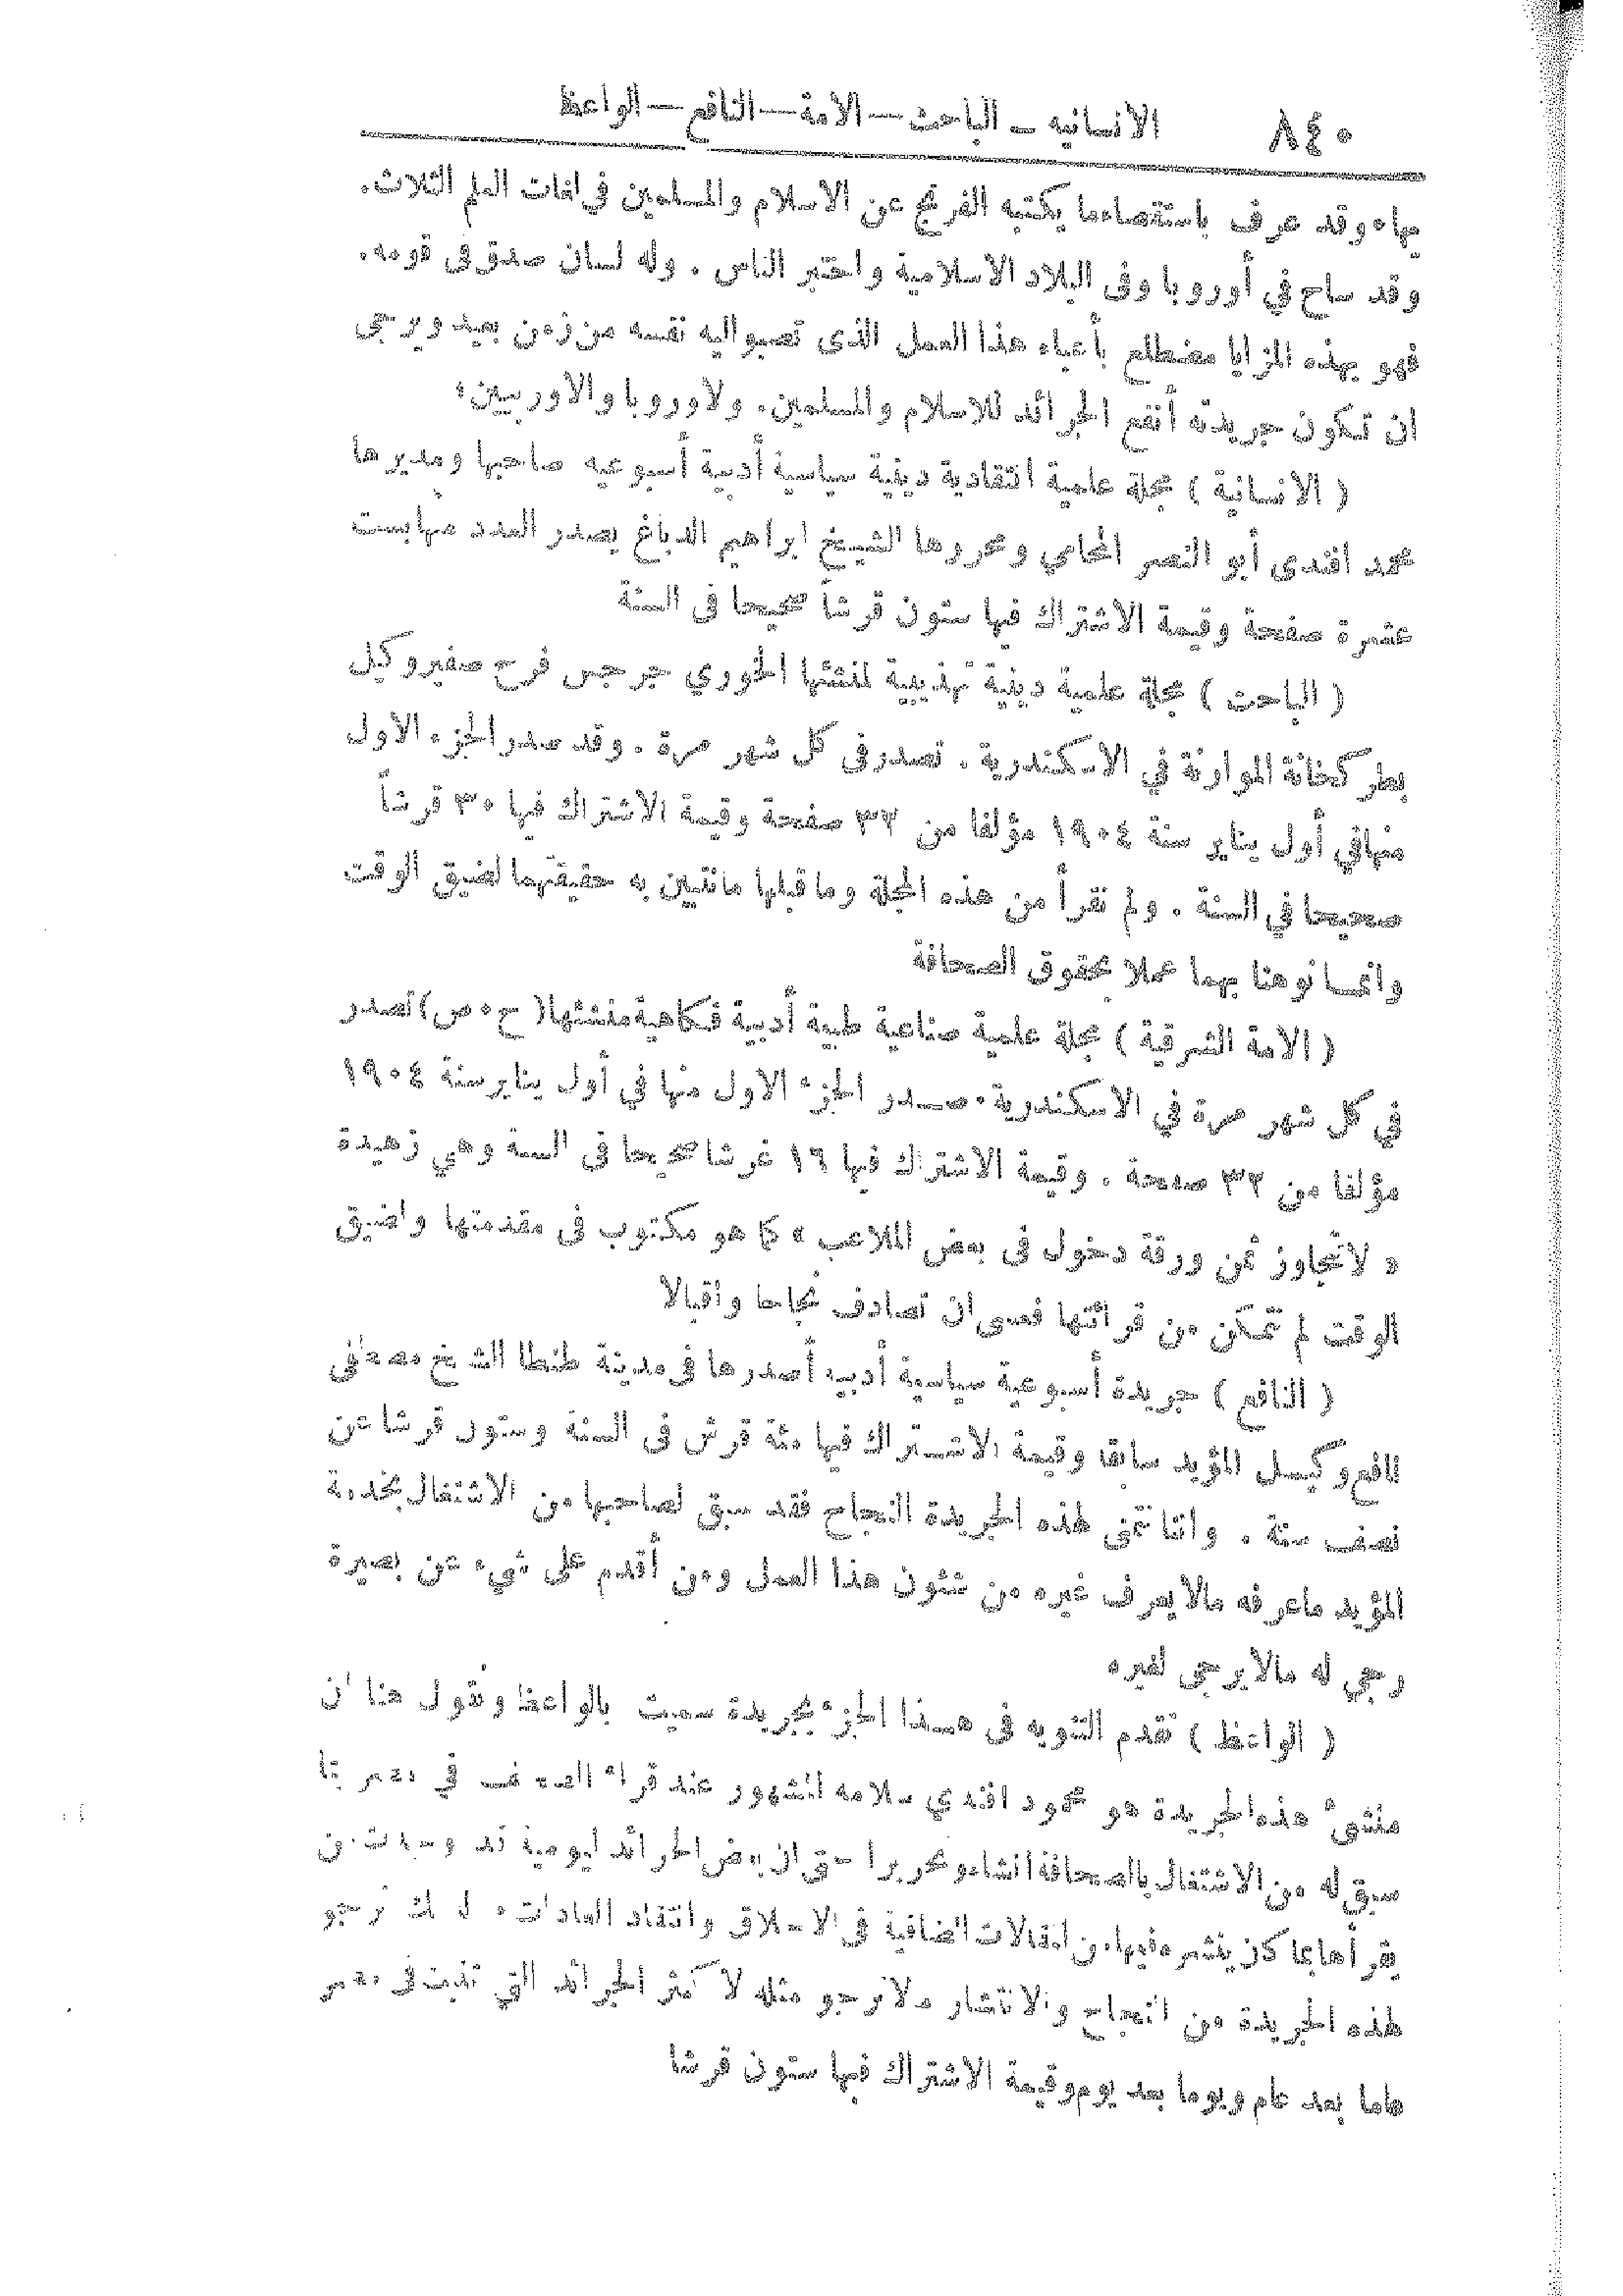 ٨٤٠ الانسانيه — الباحث — الامة — النافع — الواعظ
بها، وقد عرف باستقصاء ما يكتبه الفرنج عن الاسلام والمسلمين في لغات العلم الثلاث.
وقد ساح في أوروبا وفى البلاد الاسلامية واختبر الناس. وله لسان صدق فى قومه.
فهو بهذه المزايا مضطلع بأعباء هذا العمل الذى تصبو اليه نفسه من زمن بعيد ويرجى
ان تكون جريدته أنفع الجرائد للاسلام والمسلمين. ولأوروبا والاوربيين،
( الانسانية ) مجلة علمية انتقادية دينية سياسية أدبية أسبوعيه صاحبها ومديرها
محمد افندى أبو النصر المحامي ومحررها الشيخ ابراهيم الدباغ يصدر العدد منها بست
عشرة صفحة وقيمة الاشتراك فيها ستون قرشاً صحيحا فى السنة
( الباحث ) مجلة علمية دينية تهذيبية لمنشئها الخوري جرجس فرج صفير وكيل
بطركخانة الموارنة في الاسكندرية. تصدر فى كل شهر مرة. وقد صدر الجزء الاول
منها في أول يناير سنة ١٩٠٤ مؤلفا من ٣٢ صفحة وقيمة الاشتراك فيها ٣٠ قرشاً
صحيحا في السنة. ولم نقرأ من هذه المجلة وما قبلها ما نتبين به حقيقتهما لضيق الوقت
وانما نوهنا بهما عملا بحقوق الصحافة
( الامة الشرقية ) مجلة علمية صناعية طبية أدبية فكاهية منشئها ( ح ٠ ص ) تصدر
في كل شهر مرة في الاسكندرية. صدر الجزء الاول منها في أول يناير سنة ١٩٠٤
مؤلفا من ٣٢ صفحة. وقيمة الاشتراك فيها ١٦ غرشا صحيحا فى السنة وهي زهيدة
« لا تتجاوز ثمن ورقة دخول فى بعض الملاعب » كما هو مكتوب فى مقدمتها ولضيق
الوقت لم نتمكن من قرائتها فعسى ان تصادف نجاحا واقبالا
( النافع ) جريدة أسبوعية سياسية أدبيه أصدرها فى مدينة طنطا الشيخ مصطفى
نافع وكيل المؤيد سابقا وقيمة الاشتراك فيها مئة قرش فى السنة وستون قرشا عن
نصف سنة. واننا نتمنى لهذه الجريدة النجاح فقد سبق لصاحبها من الاشتغال بخدمة
المؤيد ما عرفه مالا يعرف غيره من شئون هذا العمل ومن أقدم على شيء عن بصيرة
رجي له مالا يرجى لغيره
( الواعظ ) تقدم التنويه فى هذا الجزء بجريدة سميت بالواعظ ونقول هنا ان
منشئ هذه الجريدة هو محمود افندي سلامه المشهور عند قراء الصحف في مصر بما
سبق له من الاشتغال بالصحافة انشاء وتحريرا حتى ان بعض الجرائد اليومية قد
يقرأها بما كان ينشره فيها من المقالات الضافية فى الاخلاق وانتقاد العادات، لذلك نرجو
لهذه الجريدة من النجاح والانتشار مالا نرجو مثله لأكثر الجرائد التي تنبت فى مصر
عاما بعد عام ويوما بعد يوم وقيمة الاشتراك فيها ستون قرشا